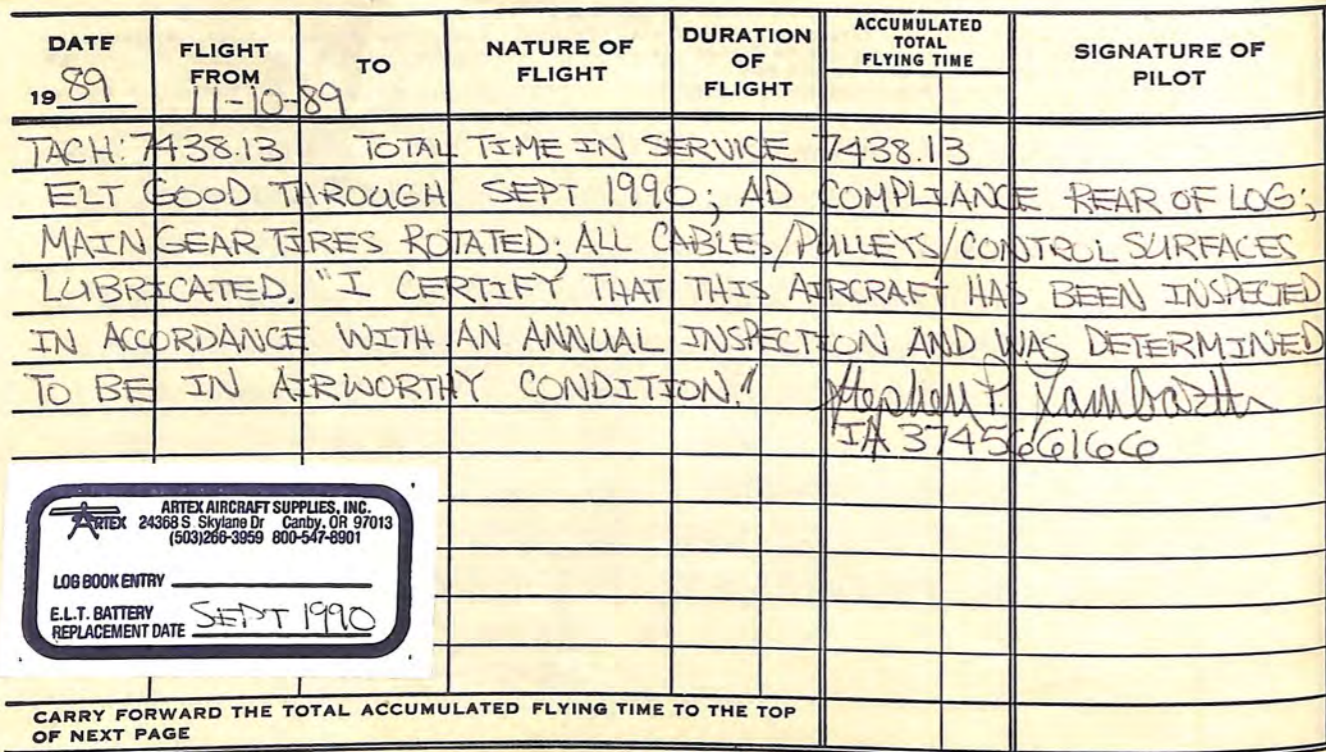 DATE
FLIGHT FROM
TO
NATURE OF FLIGHT
DURATION OF FLIGHT
ACCUMULATED TOTAL FLYING TIME
SIGNATURE OF PILOT
19 89
11-10-89
TACH: 7438.13 TOTAL TIME IN SERVICE 7438.13
ELT GOOD THROUGH SEPT 1990; AD COMPLIANCE REAR OF LOG;
MAIN GEAR TIRES ROTATED; ALL CABLES/PULLEYS/CONTROL SURFACES
LUBRICATED. "I CERTIFY THAT THIS AIRCRAFT HAS BEEN INSPECTED
IN ACCORDANCE WITH AN ANNUAL INSPECTION AND WAS DETERMINED
TO BE IN AIRWORTHY CONDITION." Stephen P.
IA 374566166
ARTEX
ARTEX AIRCRAFT SUPPLIES, INC.
24368 S Skylane Dr Canby, OR 97013
(503)266-3959 800-547-8901
LOG BOOK ENTRY
E.L.T. BATTERY
REPLACEMENT DATE SEPT 1990
CARRY FORWARD THE TOTAL ACCUMULATED FLYING TIME TO THE TOP
OF NEXT PAGE